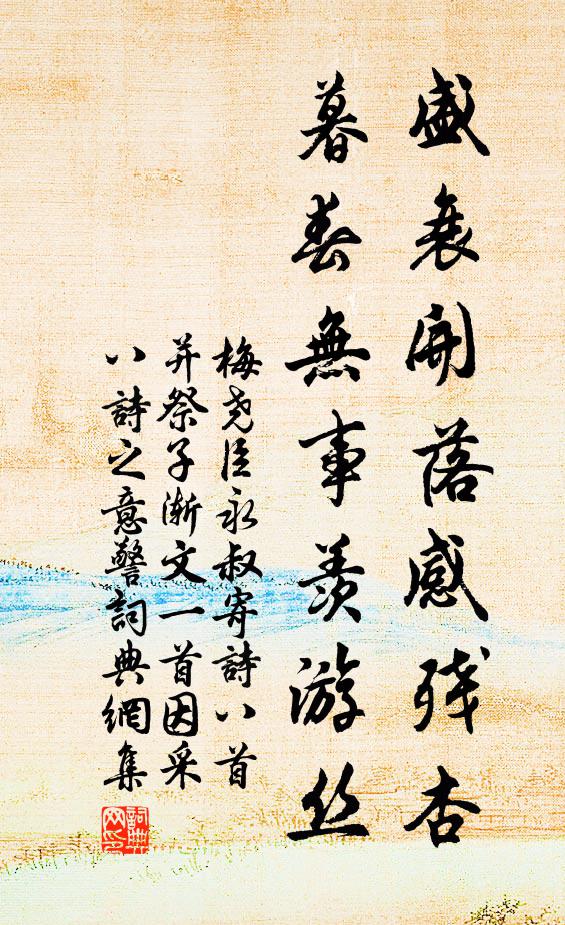 盛衰開落感残杏
暮春無事羨游丝
梅尧臣永叔寄詩八首
并祭子渐文一首因采
八詩之意警詞典網集
詞典
网印